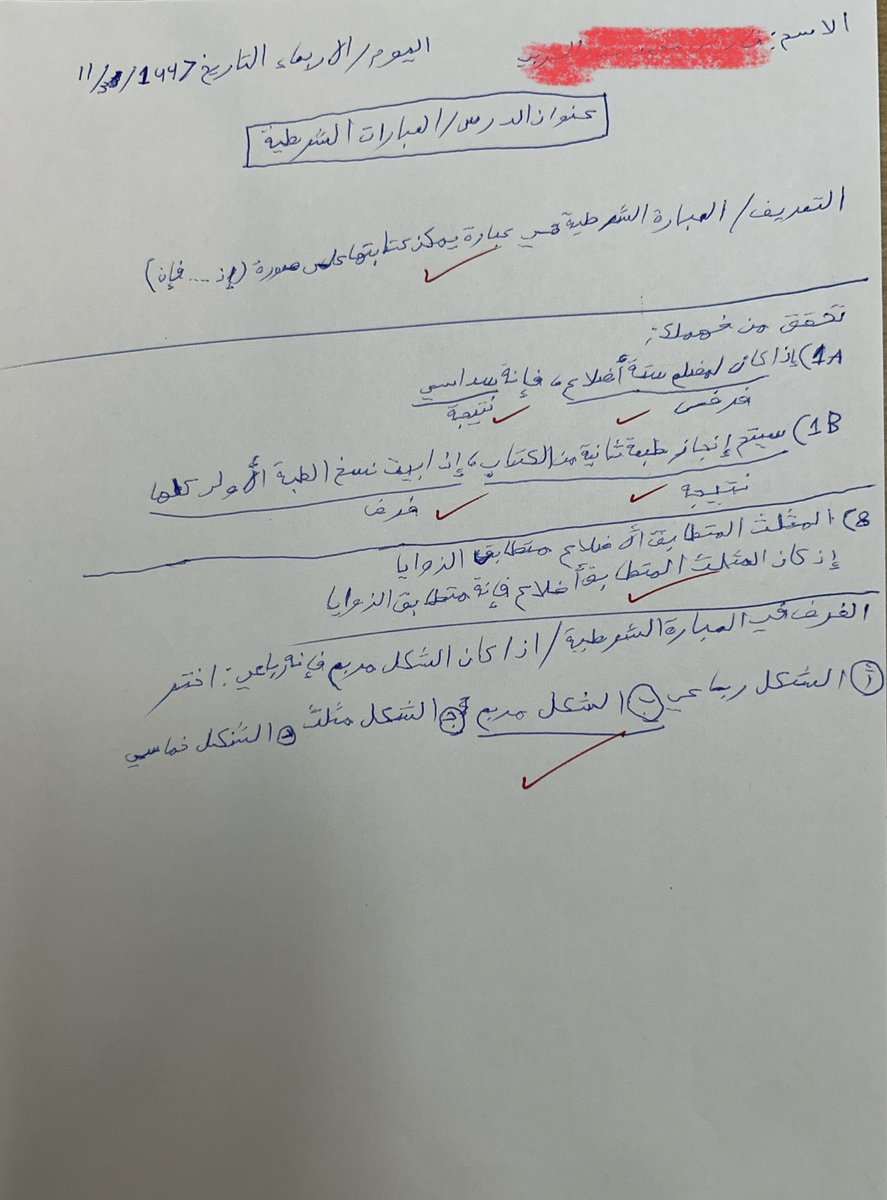 الاسم:
اليوم/الاربعاء التاريخ 1447/ /11
عنوان الدرس/العبارات الشرطية
التعريف/ العبارة الشرطية هي عبارة يمكن كتابتها على صورة (إذ....فإن)
تحقق من فهمك:
1A) إذا كان لمضلع ستة أضلاع، فإنة سداسي
فرض نتيجة
1B) سيتم إنجاز طبعة ثانية من الكتاب، إذا ابيت نسخ الطبة الأولى كلها
نتيجه فرض
8) المثلث المتطابق الأضلاع متطابق الزوايا
إذ كان المثلث المتطابق أضلاع فإنة متطابق الزوايا
الفرض في العبارة الشرطية / اذا كان الشكل مربع فإنه رباعي: اختر
أ الشكل رباعي ب الشكل مربع ج الشكل مثلث د الشكل خماسي